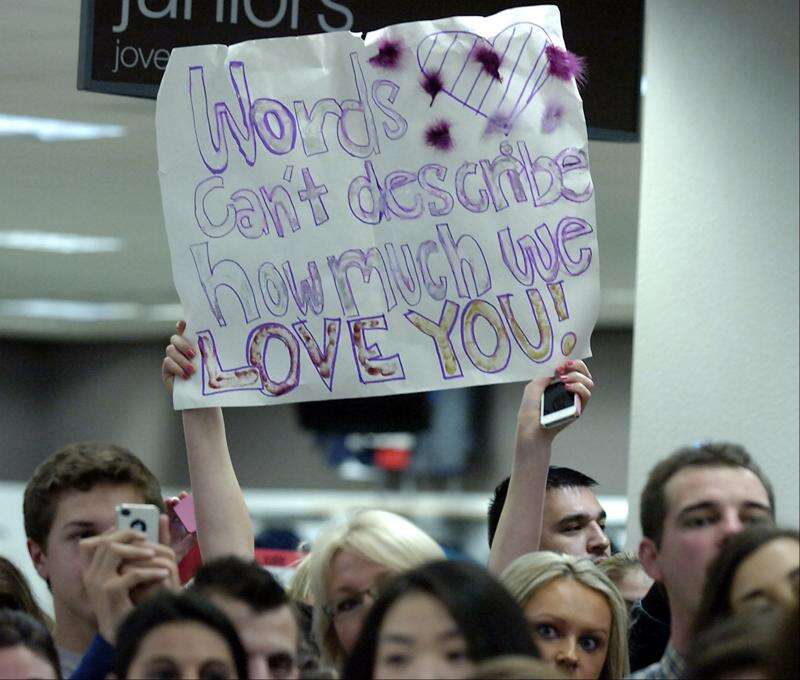 juniors
jove
Words
can't describe
how much we
LOVE YOU!